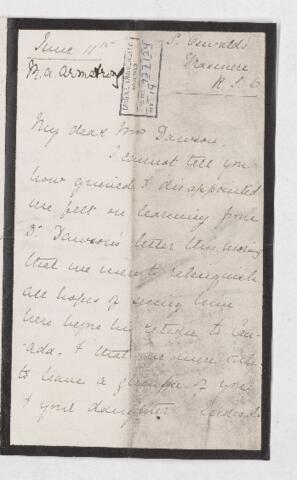 June 11th
St. Oswalds
M. A. Armstrong
R. S. O
My dear Mrs Dawson,
I cannot tell you
how grieved & disappointed
we felt on learning from
Dr Dawson's letter this morning
that we were to relinquish
all hopes of seeing him
here before his return to Can-
ada, & that you were
to have a glimpse of you
& your daughter Indeed